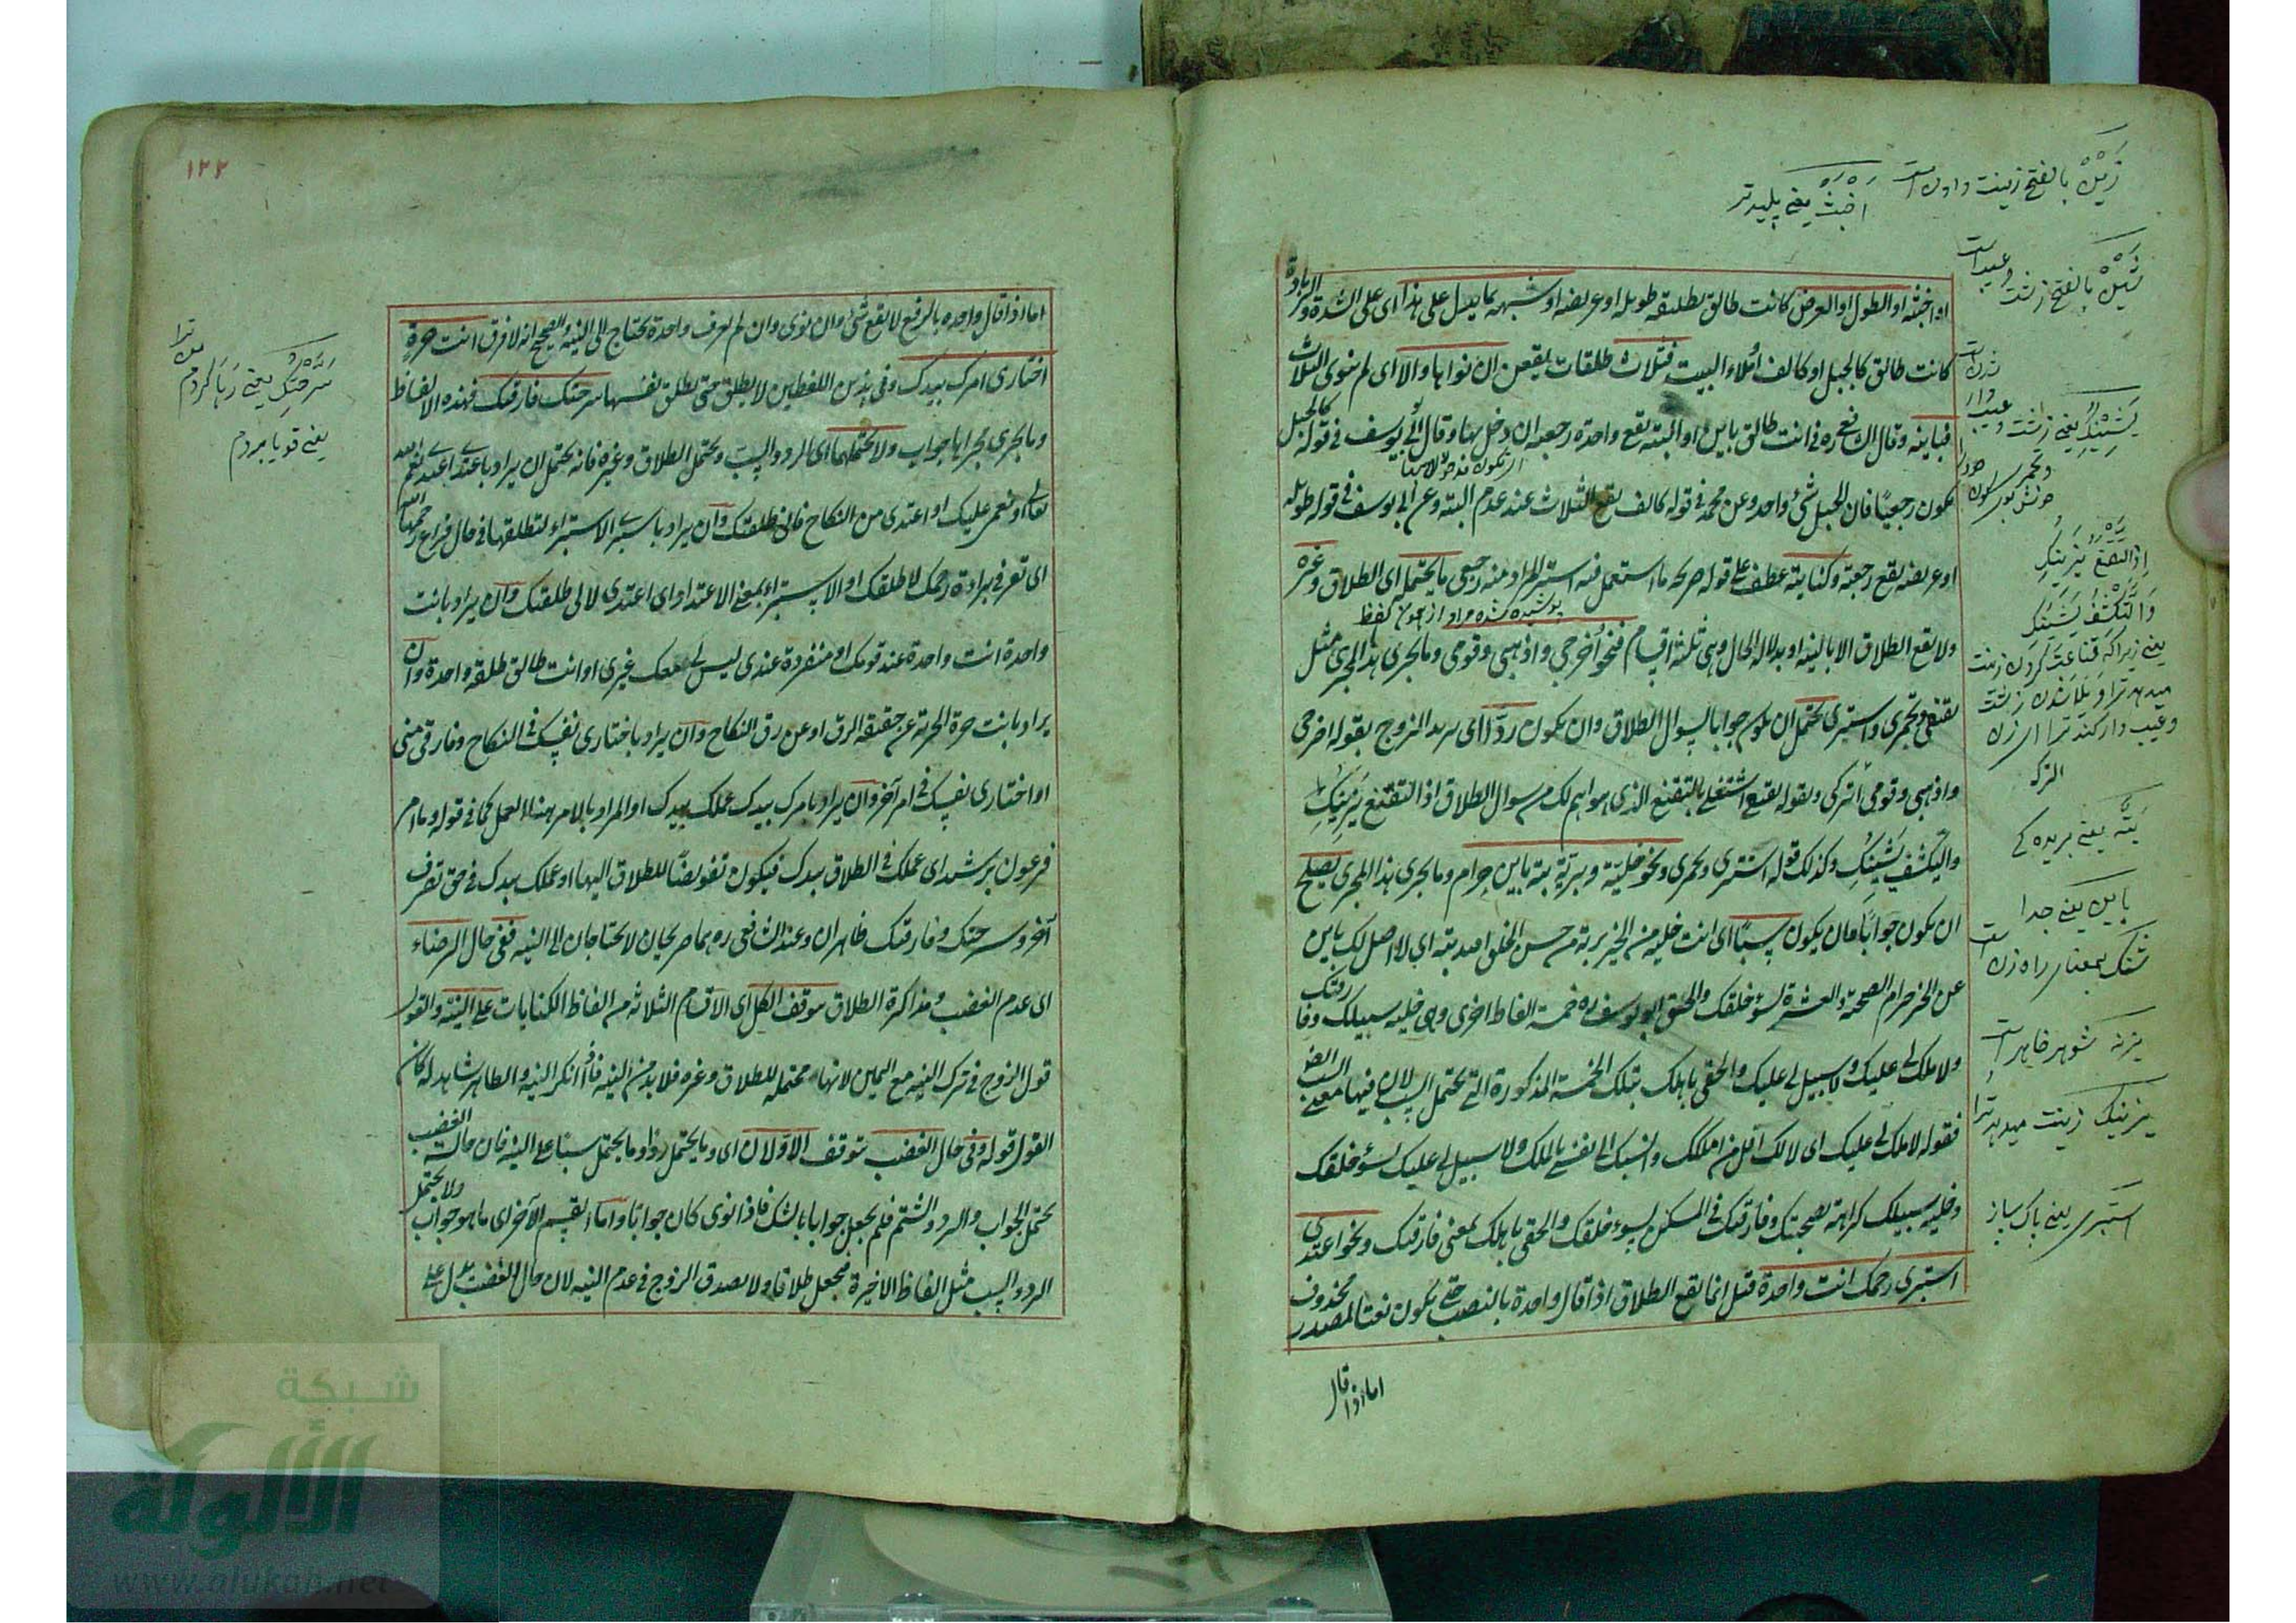 زَيْنْ بالفتح زينت دادن است
اخبث يعنے پليدتر
او اخبثه او الطول او العرض كانت طالق تطليقة طويلة او عريضة او شبهه بما يدل على هذا اى على الشدة والزيادة
كانت طالق كالجبل او كالف او ملاء البيت فثلاث طلقات يقعن ان نواها والا اى لم ينوى الثلاث
فباينه وقال الشافعى ره فى انت طالق باين او البتة يقع واحدة رجعية ان دخل بها وقال ابى يوسف فى قوله كالجبل
يكون رجعيًا فان الجبل شئ واحد وعن محمد فى قوله كالف يقع الثلاث عند عدم البته وعن ابى يوسف فى قوله طويلة
او عريضة يقع رجعية وكنايته عطف على قوله صريحه ما استعمل فيه استتر المراد منه رجعى ما يحتمله اى الطلاق وغيره
پوشيده شده مراد از همون لفظ
ولا يقع الطلاق الا بالنية او بدلالة الحال وهى ثلثة اقسام فنحو اخرجى واذهبى وقومى وما يجرى هذا المجرى مثل
تقنعى وتخمرى واستترى يحتمل ان يكون جوابا لسوال الطلاق وان يكون ردًّا اى يريد الزوج بقوله اخرجى
واذهبى وقومى اتركى وبقوله تقنعى اشتغلى بالتقنع الذى هو اهم لك من سوال الطلاق اذ التقنع يَزِينِكِ
والتكشف يَشِينِكِ وكذلك قوله استترى وتخمرى ونحو خلية وبرية بتة باين حرام وما يجرى هذا المجرى يصلح
ان يكون جوابًا وان يكون سبًّا اى انت خلية من الخير برية من حسن الخلق بتة اى لا اصل لك باين
عن الخير حرام الصحبة والعشرة لسؤ خلقك والحق ابو يوسف ره خمسة الفاظ اخرى وهى خليت سبيلك وفارقتك
ولا ملك لى عليك ولا سبيل لى عليك والحقى باهلك بتلك الخمسة المذكورة التى تحتمل السب لان فيها معنى السب
فقوله لا ملك لى عليك اى لانك اقل من املكك وانسبك الى نفسى بالملك ولا سبيل لى عليك لسؤ خلقك
وخليت سبيلك كراهة لصحبتك وفارقتك فى المسكن لسوء خلقك والحقى باهلك بمعنى فارقتك ونحو اعتدى
استبرى رحمك انت واحدة قيل انما يقع الطلاق اذا قال واحدة بالنصب حتى يكون نعتا لمصدر محذوف
اما اذا قال
شين بالفتح زشت وعيب است
اذ التقنع يزينك
والتكشف يشينك
يعنے زيراكه قناعت كردن زينت
بتّه يعنے بريده
باين يعنے جدا
يزينك زينت ميدهد ترا
استبرى يعنے پاك ساز
١٢٢
اما اذا قال واحده بالرفع لا يقع شئ وان نوى وان لم يعرف واحدة يحتاج الى النية والصحيح انه لا فرق انت حرة
اختارى امرك بيدك وفى هذين اللفظين لا يطلق حتى تطلق نفسها سرحتك فارقتك فهذه الالفاظ
وما يجرى مجراها جواب ولا يحتملهما اى الرد والسب ويحتمل الطلاق وغيره فانه يحتمل ان يراد باعتدى اعتدى نعم الله
تعالى او نعمى عليك او اعتدى من النكاح فانى طلقتك وان يراد باستبرى الاستبراء لتطلقها فى حال فراغ رحمها
اى تعرفى براءة رحمك لا طلقك او الاستبراء بمعنى الاعتداد اى اعتدى لانى طلقتك وان يراد بانت
واحدة انت واحدة عند قومك او منفردة عندى ليس لى معك غيرى او انت طالق طلقة واحدة وان
يراد بانت حرة الحرية عن حقيقة الرق او عن رق النكاح وان يراد باختارى نفسك فى النكاح وفارقى منى
او اختارى نفسك فى امر آخر وان يراد بامرك بيدك عملك بيدك او المراد بالامر هنا العمل كما فى قوله وما امر
فرعون برشيد اى عملك فى الطلاق بيدك فيكون تفويضًا للطلاق اليها او عملك بيدك فى حق تصرف
آخر وسرحتك وفارقتك ظاهران وعند الشافعى ره هما صريحان لا يحتاجان الى النية ففى حال الرضاء
اى عدم الغضب ومذاكرة الطلاق يتوقف الكل اى الاقسام الثلاثة من الفاظ الكنايات على النية والقول
قول الزوج فى ترك النية مع اليمين لانها محتملة للطلاق وغيره فلا بد من النية فاذا انكر النية والظاهر شاهد له كان
القول قوله وفى حال الغضب يتوقف الاولان اى وما يحتمل ردًّا وما يحتمل سبًّا على النية فان حالة الغضب
يحتمل الجواب والرد والشتم فلم يجعل جوابا بالشك فاذا نوى كان جوابًا واما القسم الآخر اى ما هو جواب ولا يحتمل
الرد والسب مثل الفاظ الاخيرة فيجعل طلاقا ولا يصدق الزوج فى عدم النية لان حال الغضب يدل على
سرّحتك يعنے رَها كردم من ترا
شبكة
الألوكة
www.alukah.net